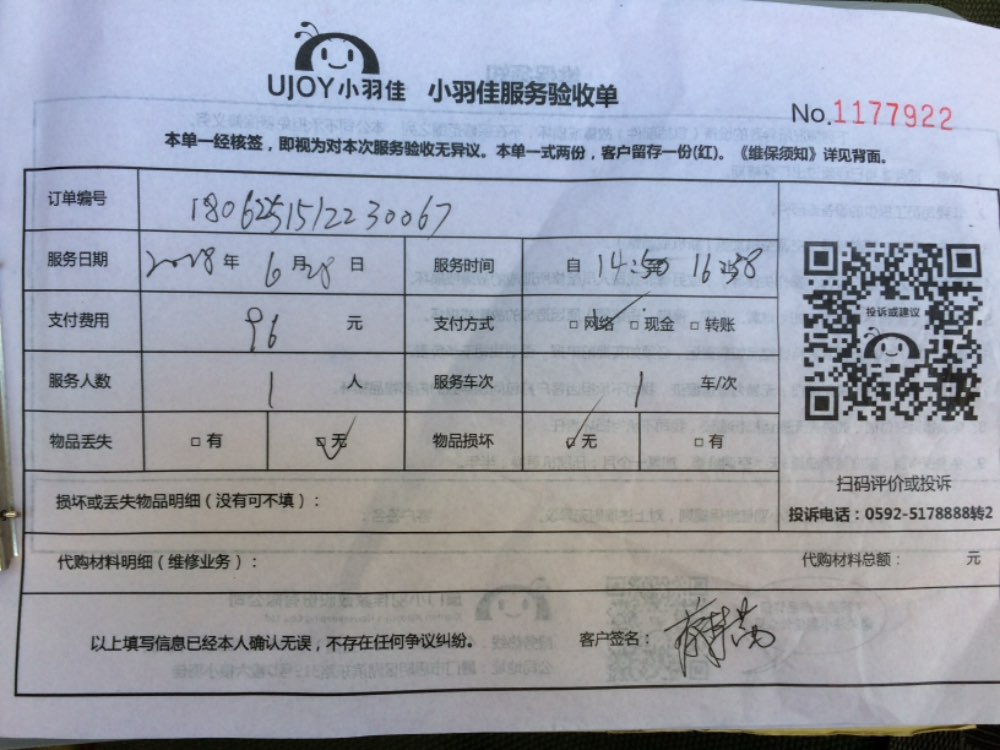 UJOY小羽佳 小羽佳服务验收单
No.1177922
本单一经核签，即视为对本次服务验收无异议。本单一式两份，客户留存一份(红)。《维保须知》详见背面。
订单编号 1806251512230067
服务日期 2018年6月28日 服务时间 自14:50 16:58
投诉或建议
支付费用 96 元 支付方式 □网络 □现金 □转账
服务人数 1 人 服务车次 1 车/次
物品丢失 □有 □无 物品损坏 □无 □有
扫码评价或投诉
损坏或丢失物品明细（没有可不填）：
投诉电话：0592-5178888转2
代购材料明细（维修业务）： 代购材料总额： 元
以上填写信息已经本人确认无误，不存在任何争议纠纷。 客户签名：